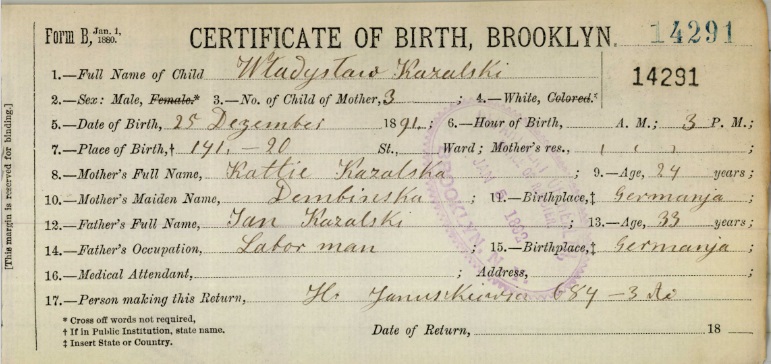 Form B, Jan. 1, 1880. CERTIFICATE OF BIRTH, BROOKLYN. 14291
1.—Full Name of Child Władysław Kazalski 14291
2.—Sex: Male, Female.* 3.—No. of Child of Mother, 3 ; 4.—White, Colored.*
5.—Date of Birth, 25 Dezember 1891. ; 6.—Hour of Birth, A. M.; 3 P. M.;
7.—Place of Birth,† 191. – 20 St., Ward; Mother's res., , , , ;
8.—Mother's Full Name, Kattie Kazalska ; 9.—Age, 24 years;
10.—Mother's Maiden Name, Dembinska ; 11.—Birthplace,‡ Germanja ;
12.—Father's Full Name, Jan Kazalski ; 13.—Age, 33 years;
14.—Father's Occupation, Labor man ; 15.—Birthplace,‡ Germanja ;
16.—Medical Attendant, ; Address, ;
17.—Person making this Return, H. 684 – 3
* Cross off words not required,
† If in Public Institution, state name.
‡ Insert State or Country.
Date of Return, 18
[This margin is reserved for binding.]
JAN 5 1892
BROOKLYN, N.Y.